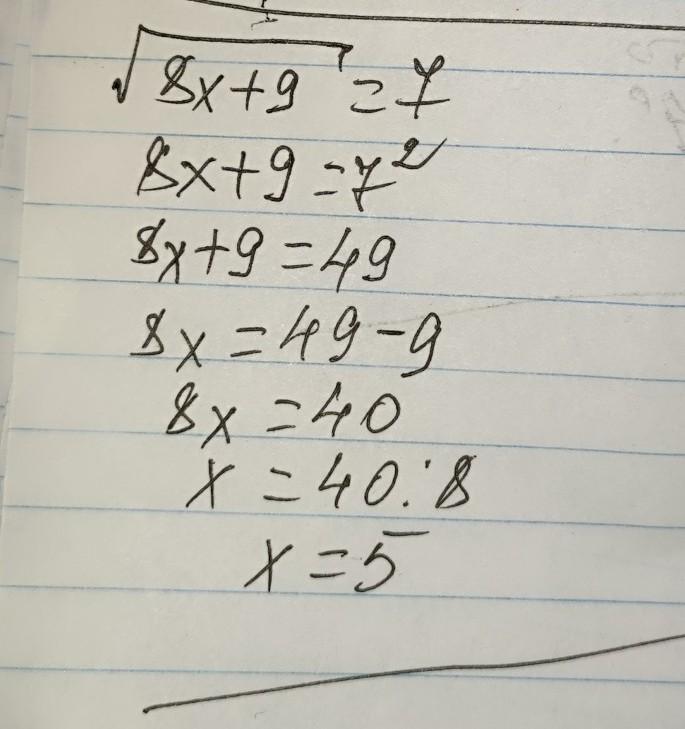 √8x+9 = 7
8x+9 = 7²
8x+9 = 49
8x = 49-9
8x = 40
x = 40:8
x = 5